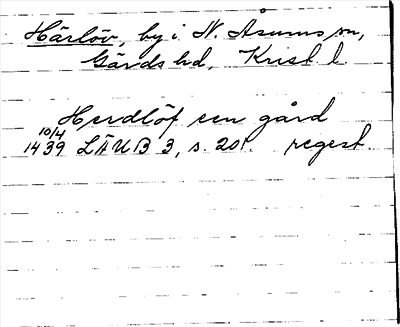 Härlöv, by i N. Åsums sn,
Gärds hd, Krist. l.
Herdlöf een gård
10/4
1439 LÄUB 3, s. 201. regest.